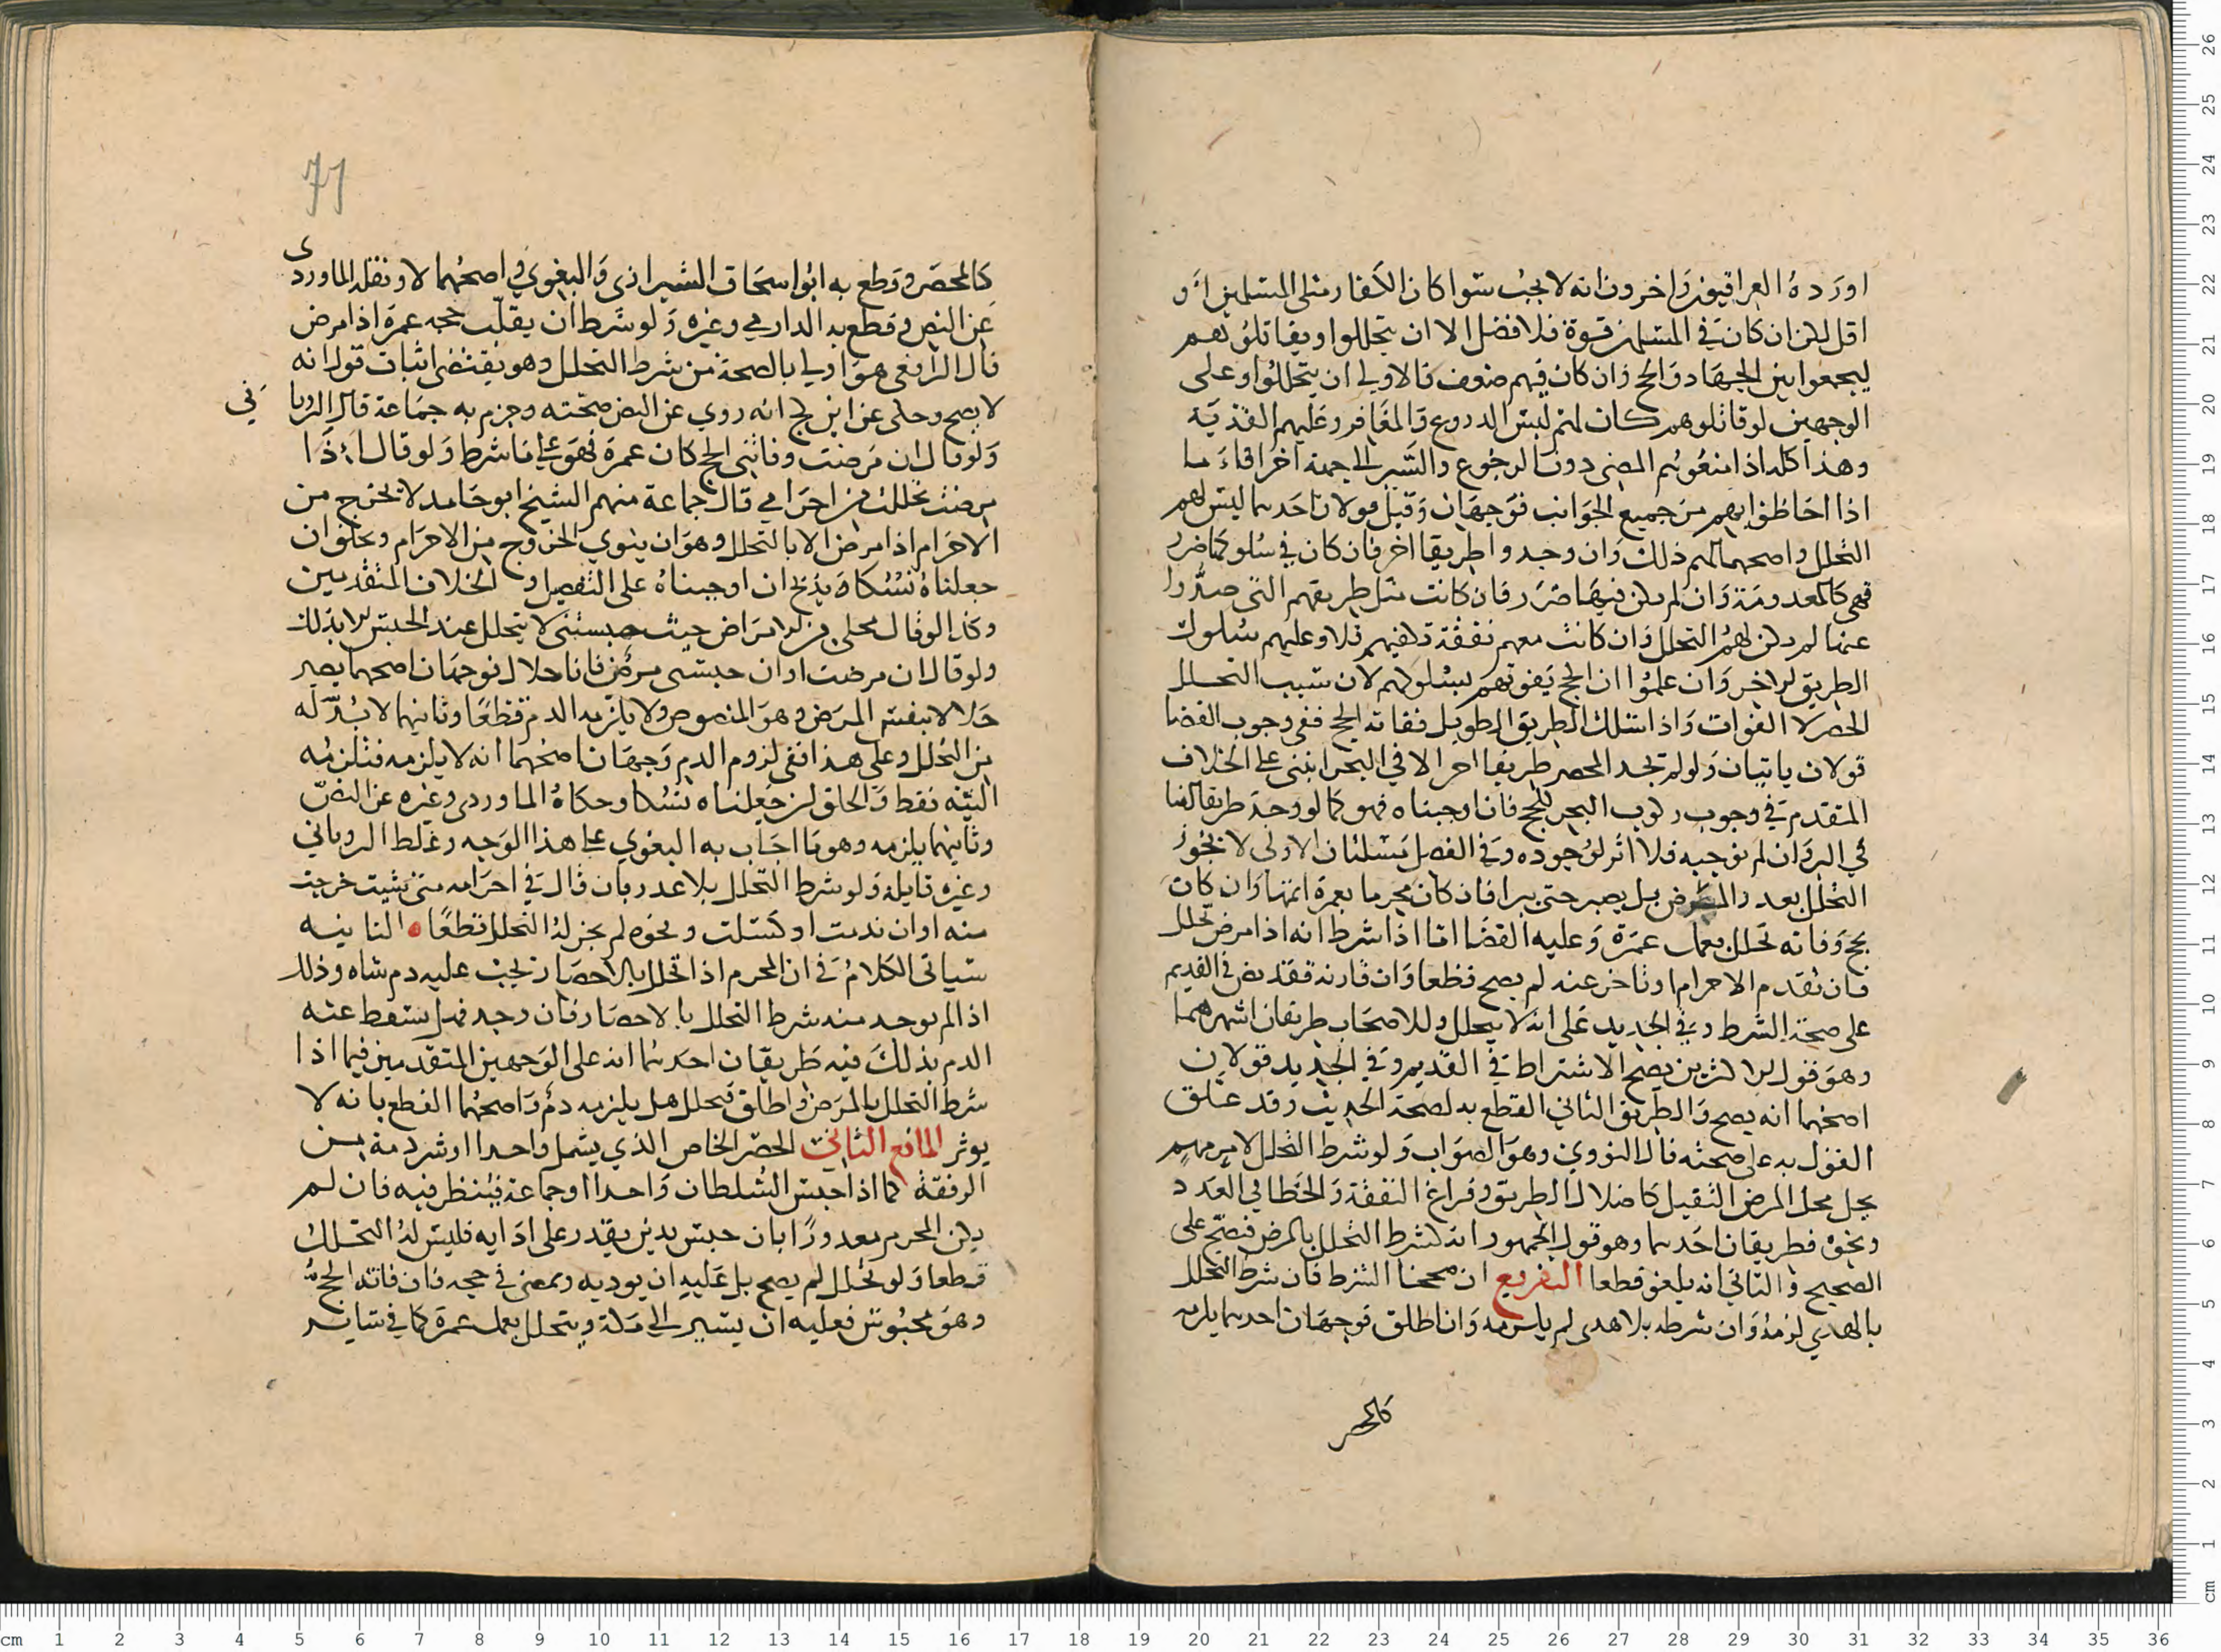 اورده العراقيون واخرون انه لا يجب سوا كان الكفار مثلي المسلمين او
اقل لكن ان كان في المسلمين قوة فلافضل الا ان يتحللوا ويقاتلوهم
ليجمعوا بين الجهاد والحج وان كان فيهم ضعف فالاولي ان يتحللوا وعلى
الوجهين لو قاتلوهم كان لهم لبس الدروع والمغافر وعليهم الفدية
وهذا كله اذا منعوهم المضي دون الرجوع والسير الي جهة اخرى فاما
اذا احاطوا بهم من جميع الجوانب فوجهان وقيل قولان احدهما ليس لهم
التحلل واصحهما لهم ذلك وان وجدوا طريقا اخر فان كان في سلوكها ضرر
فهي كالمعدومة وان لم يكن فيها ضرر فان كانت مثل طريقهم التي صدوا
عنها لم يكن لهم التحلل وان كانت معهم نفقة تكفيهم فلا وعليهم سلوك
الطريق الاخر وان علموا ان الحج يفوتهم بسلوكهم لان سبب التحلل
الحصر لا الفوات واذا سلك الطريق الطويل ففاته الحج ففي وجوب القضا
قولان ياتيان ولو لم تجد المحصر طريقا اخر الا في البحر ابتني على الخلاف
المتقدم في وجوب ركوب البحر للحج فان اوجبناه فهو كما لو وجد طريقا امنا
في البر وان لم نوجبه فلا اثر لوجوده وفي الفصل مسلتان الاولى لا يجوز
التحلل بعدر المرض بل يصبر حتى يبرا فان كان محرما بعمرة اتمها وان كان
بحج وفاته تحلل بعمل عمرة وعليه القضا اما اذا شرط انه اذا مرض تحلل
فان تقدم الاحرام او تاخر عنه لم يصح قطعا وان قارنه فقد نص في القديم
على صحة الشرط وفي الجديد على انه لا يتحلل وللاصحاب طريقان اشهرهما
وهو قول الاكثرين يصح الاشتراط في القديم وفي الجديد قولان
اصحهما انه يصح والطريق الثاني القطع به لصحة الحديث وقد علق
القول به على صحته قال النووي وهو الصواب ولو شرط التحلل لامر مهم
يحل محل المرض الثقيل كاضلال الطريق وفراغ النفقة والخطا في العدد
ونحوه فطريقان احدهما وهو قول الجمهور انه كشرط التحلل بالمرض فيصح على
الصحيح والثاني انه يلغو قطعا التفريع ان صححنا الشرط فان شرط التحلل
بالهدي لزمه وان شرطه بلا هدي لم يلزمه وان اطلق فوجهان احدهما يلزمه
كالمحصر
71
كالمحصر وقطع به ابوا سحاق الشيرازي والبغوي واصحهما لا ونقله الماوردى
عن النص وقطع به الدارمي وغيره ولو شرط ان يقلب حجه عمرة اذا مرض
قال الرافعي هو اولي بالصحة من شرط التحلل وهو يقتضي اثبات قول انه
لا يصح وحكى عن ابن كج انه روي عن النص صحته وجزم به جماعة قال الرويا في
ولو قال ان مرضت وفاتني الحج كان عمرة فهو على ما شرط ولو قال اذا
مرضت تحللت من احرامي قال جماعة منهم الشيخ ابو حامد لا يخرج من
الاحرام اذا مرض الا بالتحلل وهو ان ينوي الخروج من الاحرام ويحلق ان
جعلناه نسكا ويذبح ان اوجبناه على التفصيل والخلاف المتقدمين
وكذا لو قال محلي من الامراض حيث حبستني لا يتحلل عند الحبس الا بذلك
ولو قال ان مرضت او ان حبسني مرض فانا حلال فوجهان اصحهما يصير
حلالا بنفس المرض وهو المنصوص ولا يلزمه الدم قطعا وثانيهما لا بد له
من التحلل وعلى هذا ففي لزوم الدم وجهان اصحهما انه لا يلزمه فتلزمه
النية فقط والحلق ان جعلناه نسكا وحكاه الماوردي وغيره عن النص
وثانيهما يلزمه وهو ما اجاب به البغوي على هذا الوجه وغلط الروياني
وغيره قايله ولو شرط التحلل بلا عدر بان قال في احرامه متى شيت خرجت
منه او ان ندمت او كسلت ونحوه لم يجز له التحلل قطعا الثانيه
سياتي الكلام في ان المحرم اذا تحلل بالاحصار يجب عليه دم شاه وذلك
اذا لم يوجد منه شرط التحلل بالاحصار فان وجد فهل يسقط عنه
الدم بذلك فيه طريقان احدهما انه على الوجهين المتقدمين فيما اذا
شرط التحلل بالمرض واطلق فتحلل هل يلزمه دم واصحهما القطع بانه لا
يوثر المانع الثاني الحصر الخاص الذي يشمل واحدا او شردمة من
الرفقة كما اذا حبس السلطان واحدا او جماعة فينظر فيه فان لم
يكن المحرم معدورا بان حبس بدين يقدر على ادايه فليس له التحلل
قطعا ولو تحلل لم يصح بل عليه ان يوديه ويمضي في حجه فان فاته الحج
وهو محبوس فعليه ان يسير الي مكة ويتحلل بعمل عمرة كما في ساير